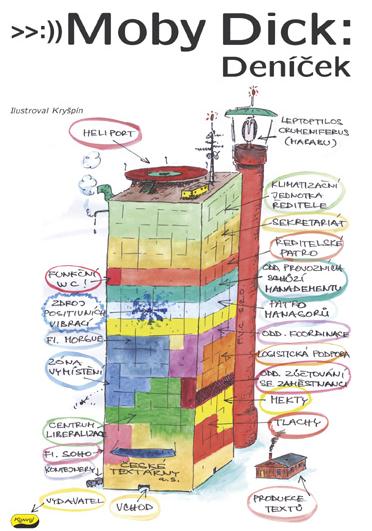 >>:)) Moby Dick:
Deníček
Ilustroval Kryšpín
HELIPORT
LEPTOPTILOS
CRUMENIFERUS
(MARABU)
KLIMATIZAČNÍ
JEDNOTKA
ŘEDITELE
SEKRETARIÁT
ŘEDITELSKÉ
PATRO
FUNKČNÍ
WC!
ODD. PROVOZNÍCH
MANAGEMENTU
ZDROJ
POSITIVNÍCH
VIBRACÍ
PATRO
MANAGORŮ
FI. MORGUE
ODD. KOORDINACE
ZÓNA
VYMÍSTĚNÍ
LOGISTICKÁ PODPORA
ODD. ZÚČTOVÁNÍ
SE ZAMĚSTNANCI
MEKTY
CENTRUM
LIBERALIZACE
TLACHY
FI. SOHO
KONTEJNERY
ČESKÉ
TEXTÁRNY
a.s.
VYDAVATEL
VCHOD
PRODUKCE
TEXTŮ